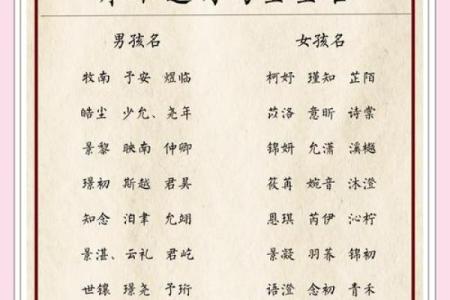 男孩名 女孩名
牧南 予安 煜临 柯妤 瑾知 芷陌
皓尘 少允、尧年 苡洛 意昕 诗棠
景黎 映南 仲卿 锦妍 允潇 溪樾
璟初 斯越 君昊 筱苒 婉音 沐澄
知念 洎聿 允翊 恩琪 芮伊 沁柠
景湛、云礼 君屹 景凝 羽荞 锦初
世镶 璟尧 予珩 语澄 念初 青禾